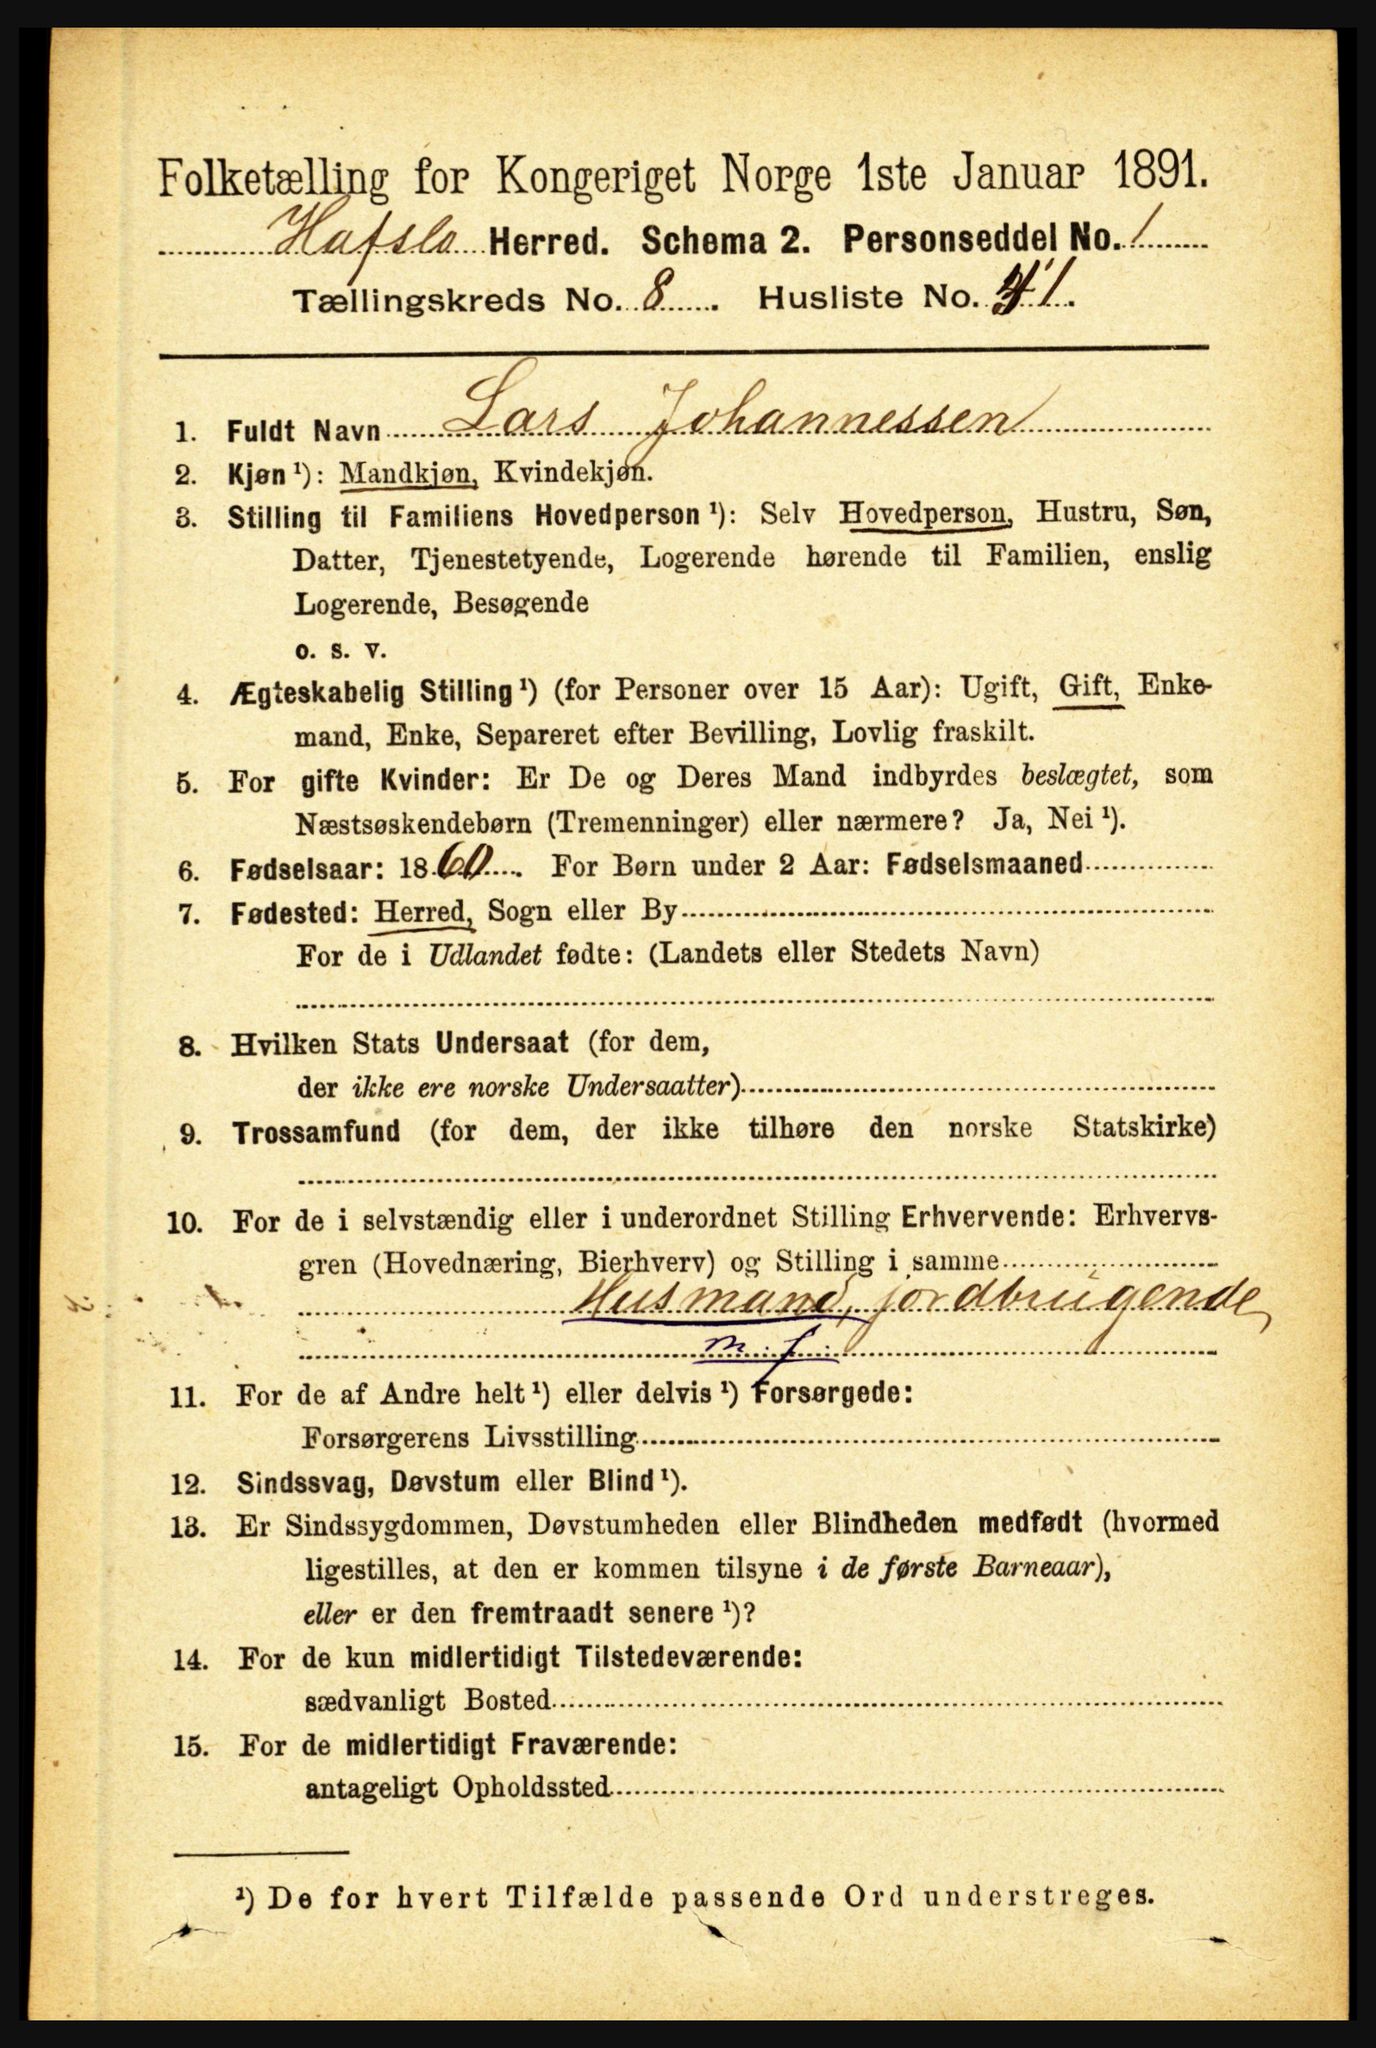 Folketælling for Kongeriget Norge 1ste Januar 1891.
Hafslo Herred. Schema 2. Personseddel No. 1
Tællingskreds No. 8. Husliste No. 41.
1. Fuldt Navn Lars Johannessen
2. Kjøn ¹): Mandkjøn, Kvindekjøn.
3. Stilling til Familiens Hovedperson ¹): Selv Hovedperson, Hustru, Søn,
Datter, Tjenestetyende, Logerende hørende til Familien, enslig
Logerende, Besøgende
o. s. v.
4. Ægteskabelig Stilling ¹) (for Personer over 15 Aar): Ugift, Gift, Enke-
mand, Enke, Separeret efter Bevilling, Lovlig fraskilt.
5. For gifte Kvinder: Er De og Deres Mand indbyrdes beslægtet, som
Næstsøskendebørn (Tremenninger) eller nærmere? Ja, Nei ¹).
6. Fødselsaar: 1860. For Børn under 2 Aar: Fødselsmaaned
7. Fødested: Herred, Sogn eller By
For de i Udlandet fødte: (Landets eller Stedets Navn)
8. Hvilken Stats Undersaat (for dem,
der ikke ere norske Undersaatter)
9. Trossamfund (for dem, der ikke tilhøre den norske Statskirke)
10. For de i selvstændig eller i underordnet Stilling Erhvervende: Erhvervs-
gren (Hovednæring, Bierhverv) og Stilling i samme
Husmand, jordbrugende
m. f.
11. For de af Andre helt ¹) eller delvis ¹) Forsørgede:
Forsørgerens Livsstilling
12. Sindssvag, Døvstum eller Blind ¹).
13. Er Sindssygdommen, Døvstumheden eller Blindheden medfødt (hvormed
ligestilles, at den er kommen tilsyne i de første Barneaar),
eller er den fremtraadt senere ¹)?
14. For de kun midlertidigt Tilstedeværende:
sædvanligt Bosted
15. For de midlertidigt Fraværende:
antageligt Opholdssted
¹) De for hvert Tilfælde passende Ord understreges.